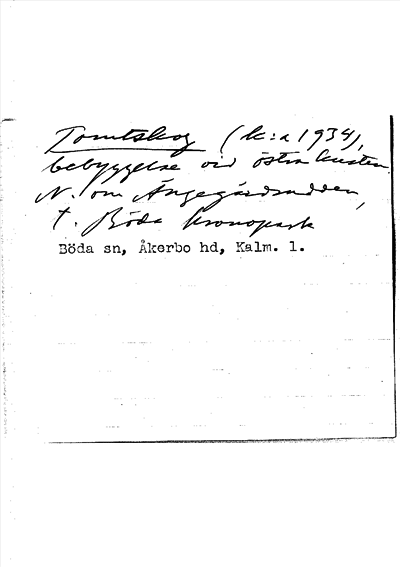 Tomtskog (k:a 1934),
bebyggelse vid östra kusten
N. om Ängegårdsudden,
t. Böda kronopark
Böda sn, Åkerbo hd, Kalm. l.